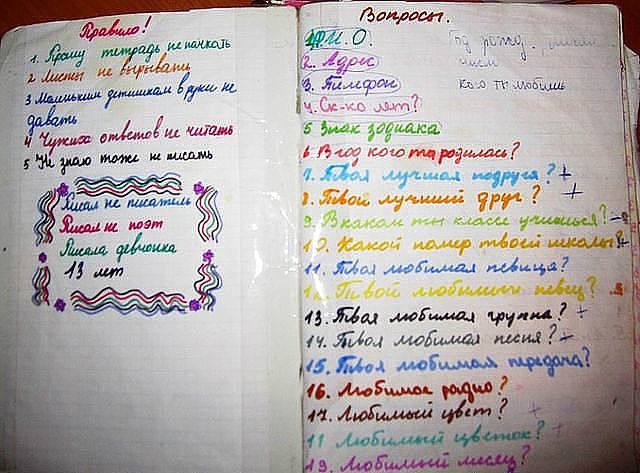 Правило!
1. Прошу тетрадь не пачкать
2 Листы не вырывать
3 Маленьким детишкам в руки не
давать
4 Чужих ответов не читать
5 Не знаю тоже не писать
Писал не писатель
Писал не поэт
Писала девчонка
13 лет
Вопросы.
1 Ф.И.О.
2. Адрес
3. Телефон
4. Ск-ко лет?
5 Знак зодиака
6 В год кого ты родилась?
7. Твоя лучшая подруга? +
8. Твой лучший друг? +
9. В каком ты классе учишься?
10. Какой номер твоей школы?
11. Твоя любимая певица?
12. Твой любимый певец?
13. Твоя любимая группа? +
14. Твоя любимая песня?
15. Твоя любимая передача?
16. Любимое радио?
17. Любимый цвет? +
11 Любимый цветок? +
19. Любимый месяц?
Год рожд.
кого ты любишь